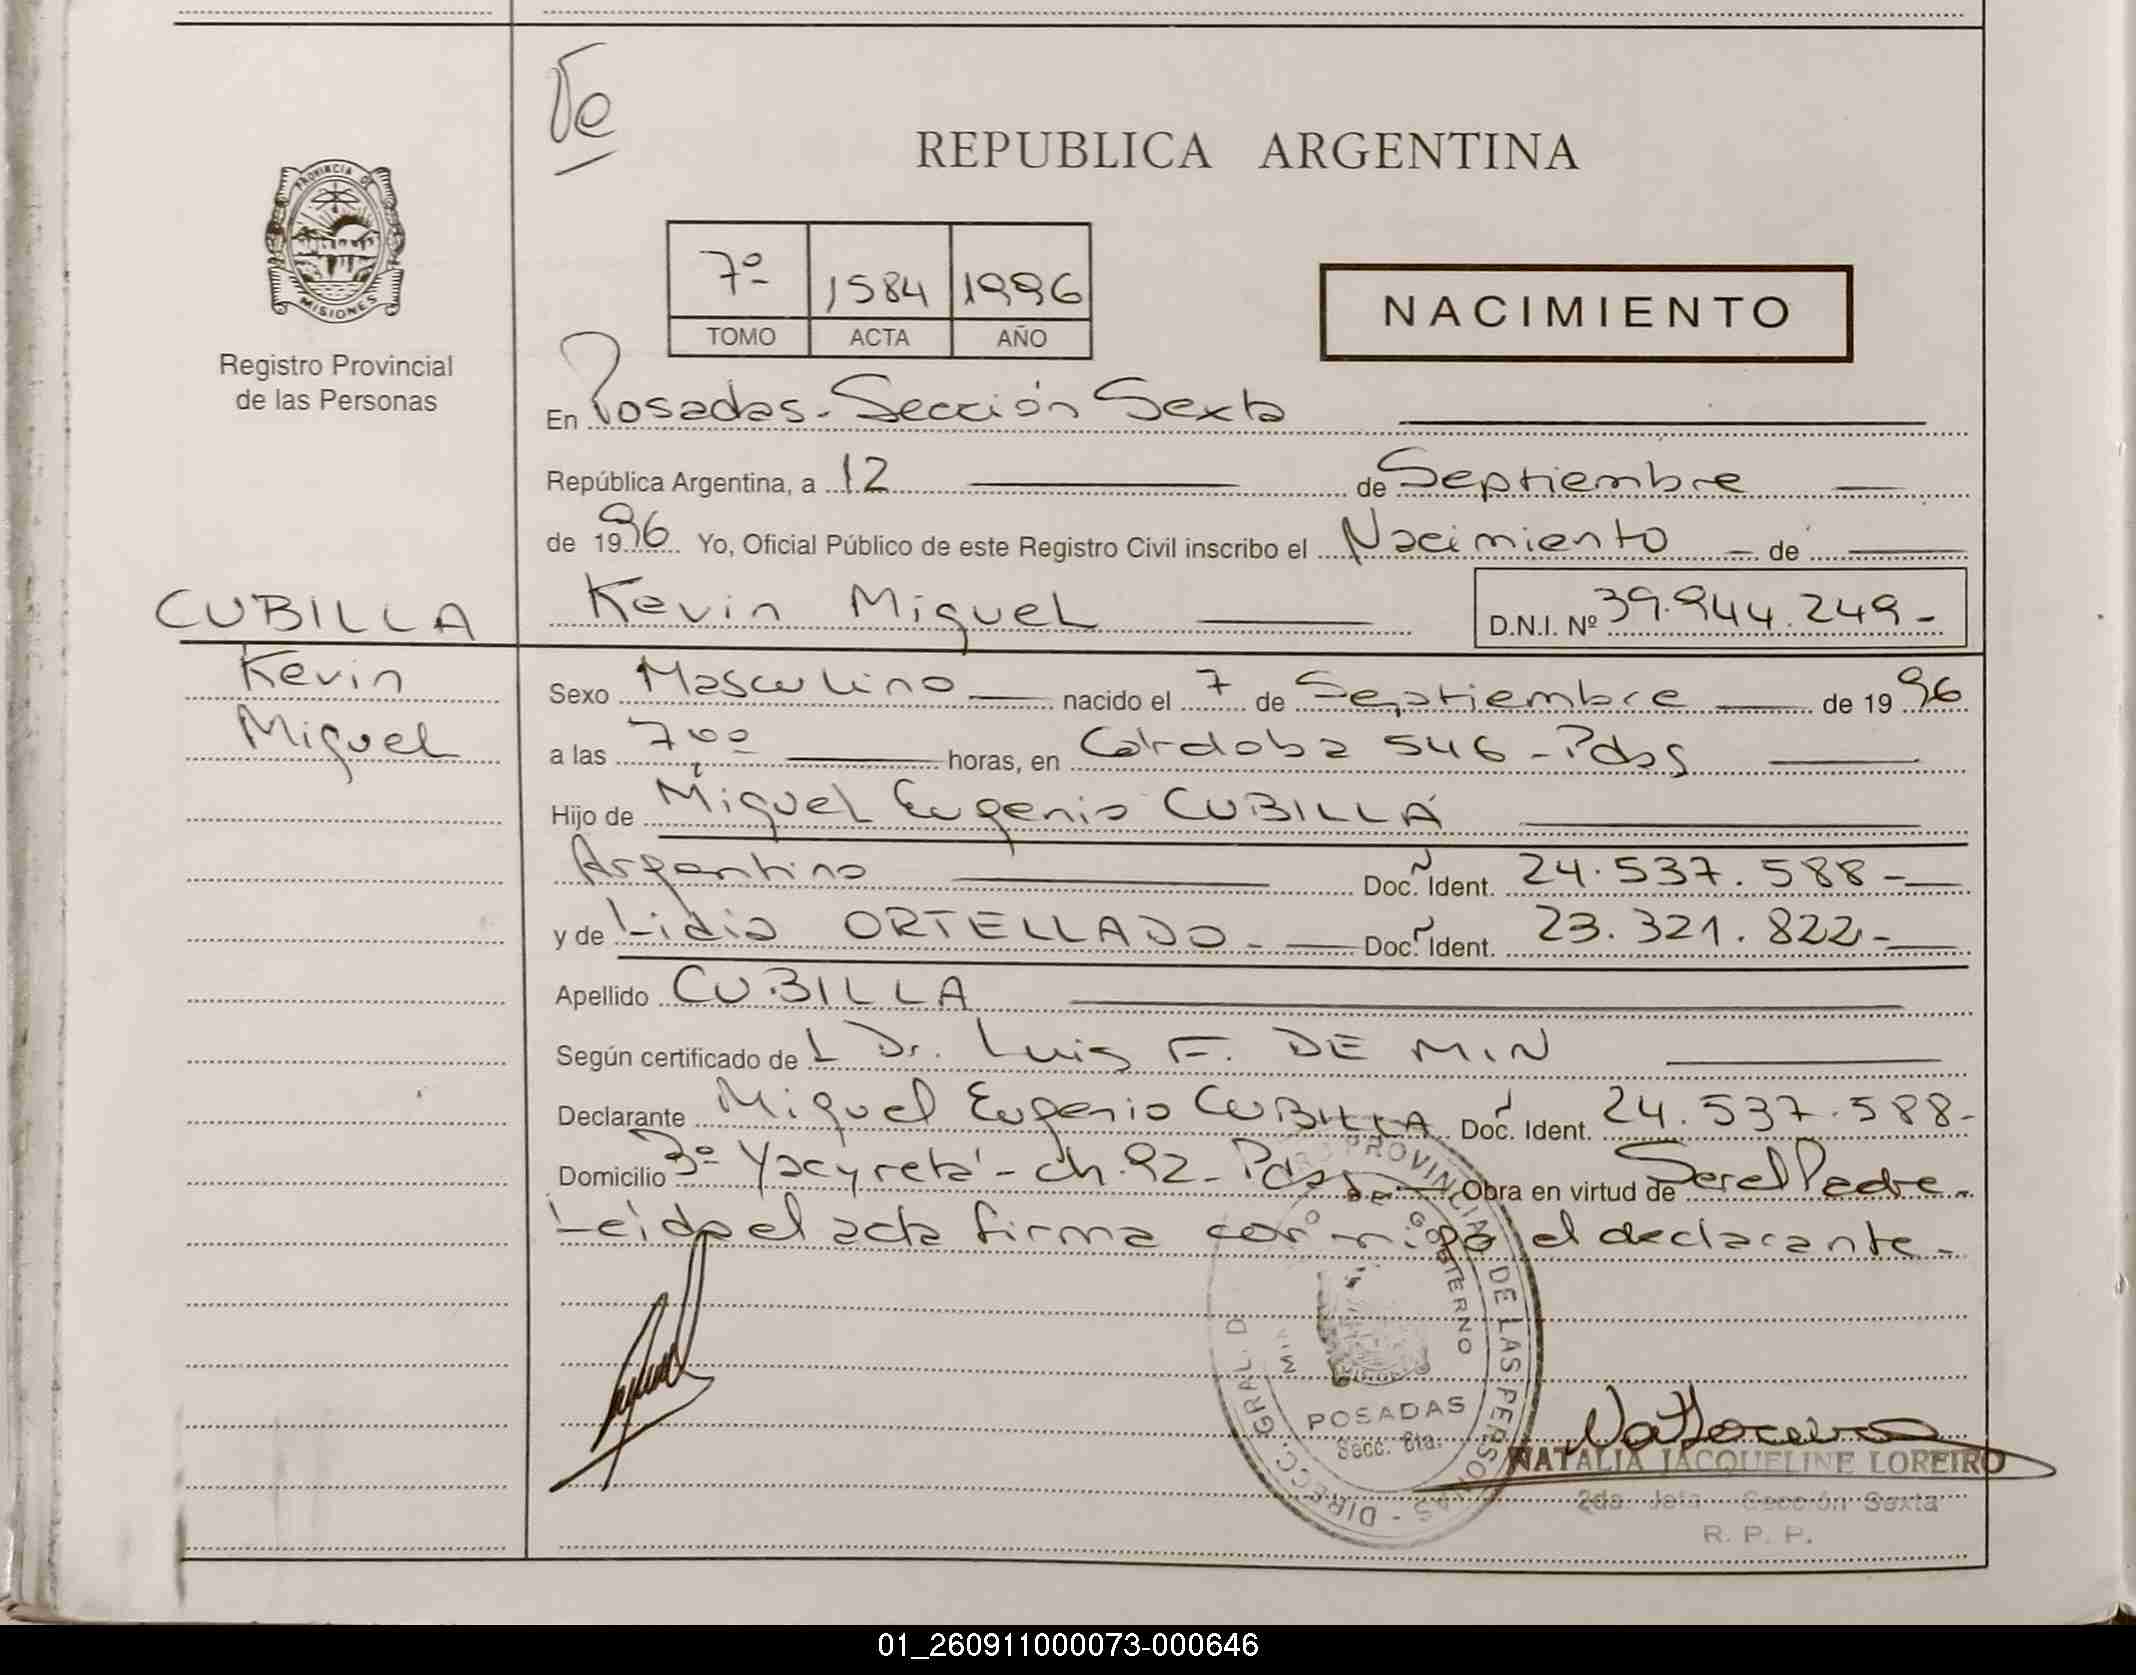 Te
REPUBLICA ARGENTINA
PROVINCIA DE
MISIONES
7º 1584 1996
TOMO ACTA AÑO
NACIMIENTO
Registro Provincial
de las Personas
En Posadas - Sección Sexta
República Argentina, a 12 de Septiembre
de 1996 Yo, Oficial Público de este Registro Civil inscribo el Nacimiento de
CUBILLA Kevin Miguel D.N.I. Nº 39.944.249-
Kevin
Miguel
Sexo Masculino nacido el 7 de Septiembre de 1996
a las 7ºº horas, en Córdoba 546 - Pdas
Hijo de Miguel Eugenio CUBILLA
Argentino Doc. Ident. 24.537.588-
y de Lidia ORTELLADO - Doc. Ident. 23.321.822-
Apellido CUBILLA
Según certificado de L Dr. Luis F. DE MIN
Declarante Miguel Eugenio CUBILLA Doc. Ident. 24.537.588-
Domicilio Bº Yacyretá - ch. 92 - Pdas Obra en virtud de Ser el Padre -
Leída el acta firma conmigo el declarante -
DIRECC. GRAL. D PROVINCIAL DE LAS PERSONAS -
MIN O DE GOBIERNO
POSADAS
Secc. 6ta.
NATALIA JACQUELINE LOREIRO
2da. Jefa Sección Sexta
R. P. P.
01_260911000073-000646